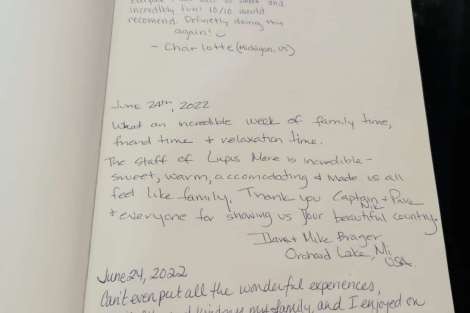 and
incredibly fun! 10/10 would
recommend. Definetly doing this
again!
- Charlotte (Michigan, US)
June 24th, 2022
What an incredible week of family time,
friend time + relaxation time.
The staff of Lupus Mare is incredible -
sweet, warm, accomodating + made us all
feel like family. Thank you Captain
+ everyone for showing us your beautiful country.
Dave + Mike Brager
Orchard Lake, Mi
USA
June 24, 2022
Can't even put all the wonderful experiences,
my family, and I enjoyed on